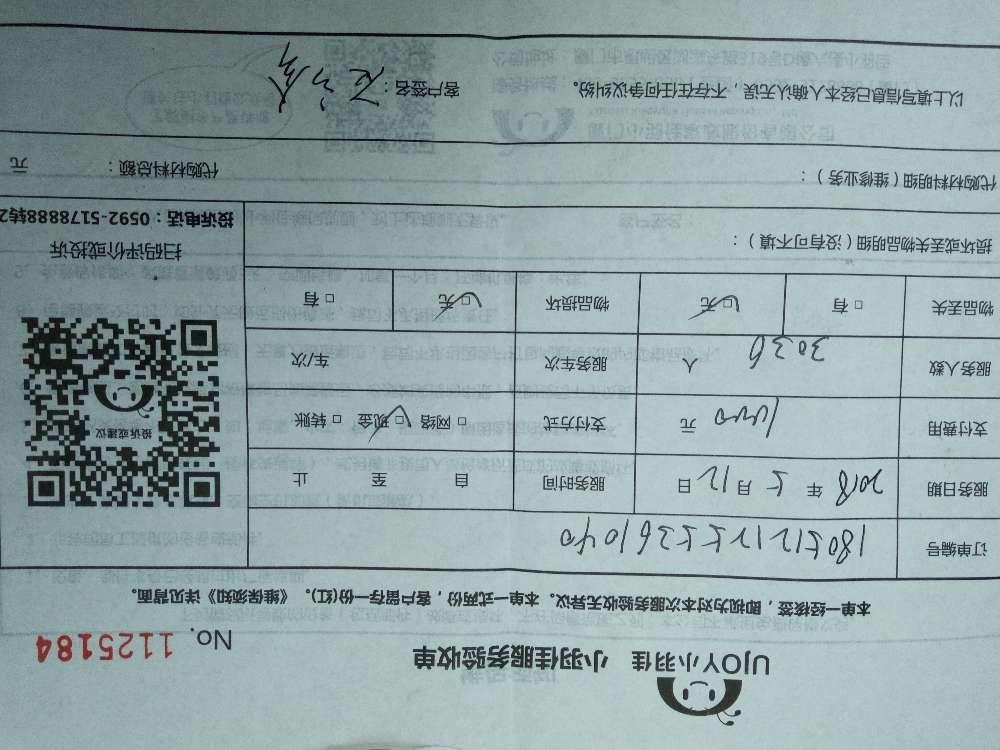 UJOY小羽佳 小羽佳服务验收单
No. 1125184
本单一经签核，即视为对本次服务验收无异议。本单一式两份，客户留存一份(红)。《维保须知》详见背面。
订单编号
服务日期 2018 年 5 月 12 日 服务时间 自 至 止
支付费用 元 支付方式 □ 网络 □ 现金 □ 转账
服务人数 3036 人 服务车次 车/次
物品丢失 □ 有 □ 无 物品损坏 □ 无 □ 有
投诉或建议
扫码评价或投诉
投诉电话：0592-5178888转2
损坏或丢失物品明细（没有可不填）：
代购材料明细（维修业务）： 代购材料总额： 元
以上填写信息已经本人确认无误，不存在任何争议纠纷。 客户签名：